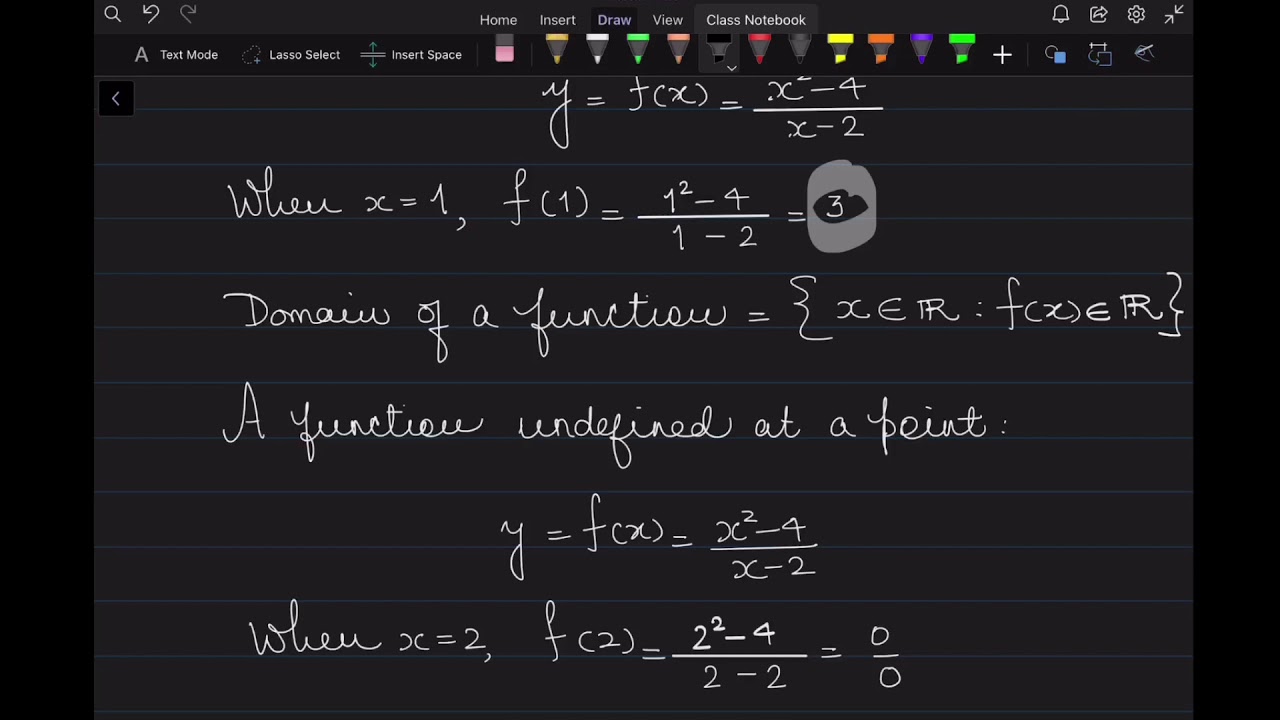 Home Insert Draw View Class Notebook
Text Mode Lasso Select Insert Space
y = f(x) = (x² - 4)/(x - 2)
When x = 1, f(1) = (1² - 4)/(1 - 2) = 3
Domain of a function = {x ∈ ℝ : f(x) ∈ ℝ}
A function undefined at a point:
y = f(x) = (x² - 4)/(x - 2)
When x = 2, f(2) = (2² - 4)/(2 - 2) = 0/0